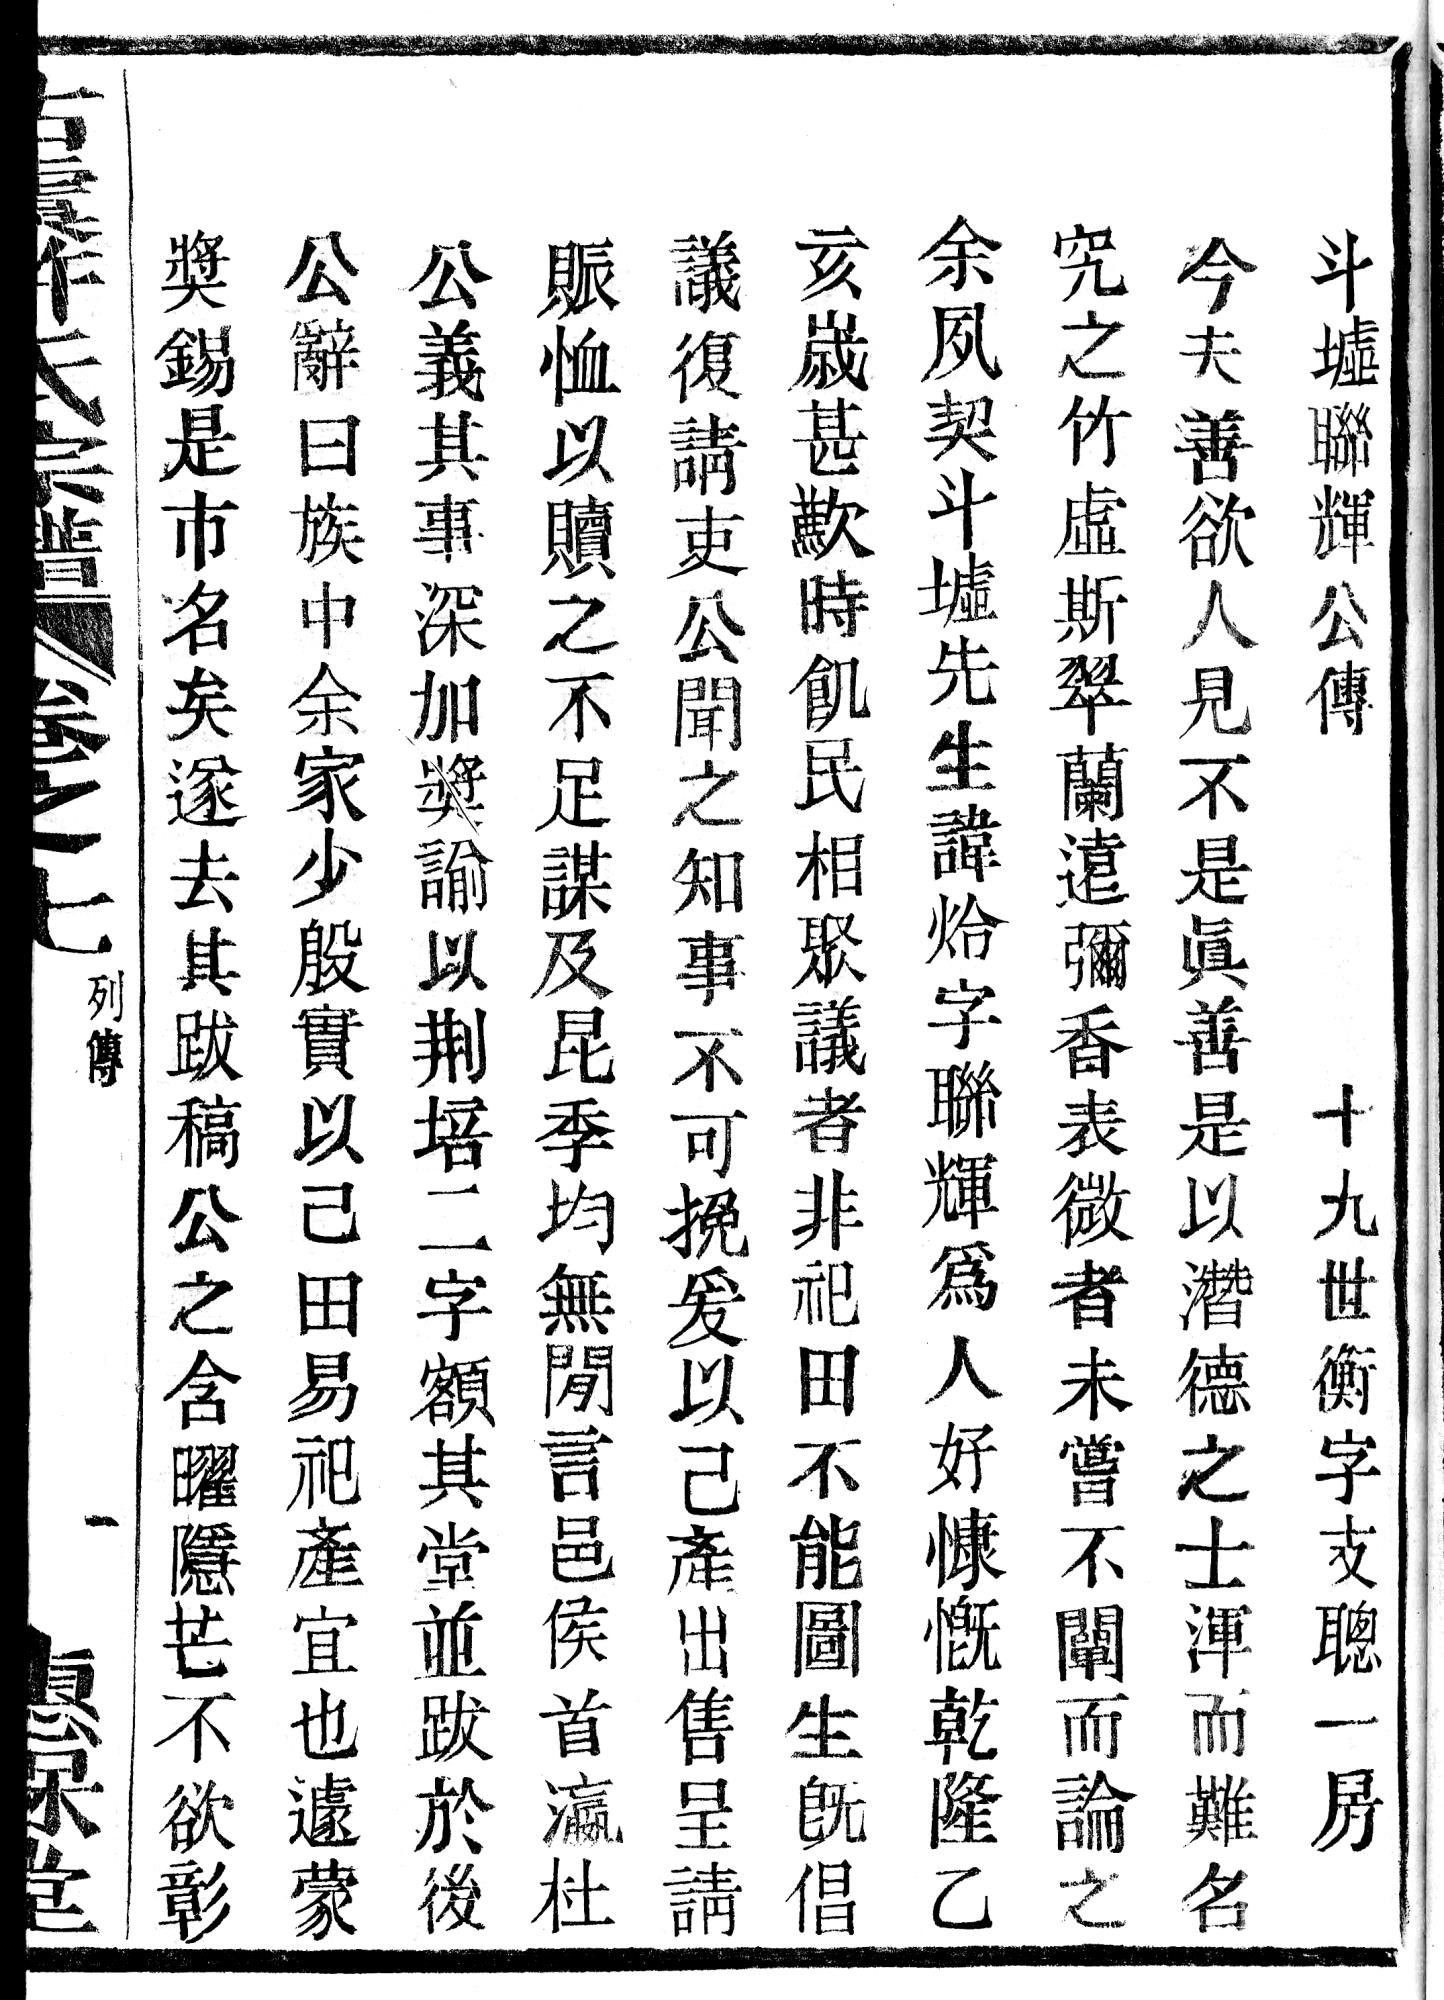 斗墟聯輝公傳　十九世衡字支聰一房
今夫善欲人見不是眞善是以潛德之士渾而難名
究之竹虛斯翠蘭遠彌香表微者未嘗不闡而論之
余夙契斗墟先生諱烚字聯輝爲人好慷慨乾隆乙
亥歲甚歉時飢民相聚議者非祀田不能圖生旣倡
議復請吏公聞之知事不可挽爰以己產出售呈請
賑恤以贖之不足謀及昆季均無閒言邑侯首瀛杜
公義其事深加奬諭以荆培二字額其堂並跋於後
公辭曰族中余家少殷實以己田易祀產宜也遽蒙
奬錫是市名矣遂去其跋稿公之含曜隱芒不欲彰
氏宗譜 卷之七 列傳 一 惠 堂